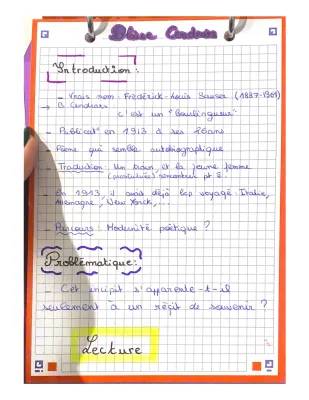 Blaise Cendrars
Introduction :
- Vrais nom : Frédérick-Louis Sauser (1887-1961)
→ B. Cendrars
c'est un "bourlingueur"
- Publicat° en 1913 à ses 26ans
- Poème qui semble autobiographique
- Traduction : Un train, et la jeune femme
(prostituée) rencontrer pt 2.
- En 1913, il avait déjà bcp voyagé : Italie,
Allemagne, New York, ...
- Parcours : Modernité poétique ?
Problématique :
- Cet incipit s'apparente-t-il
seulement à un récit de souvenir ?
Lecture